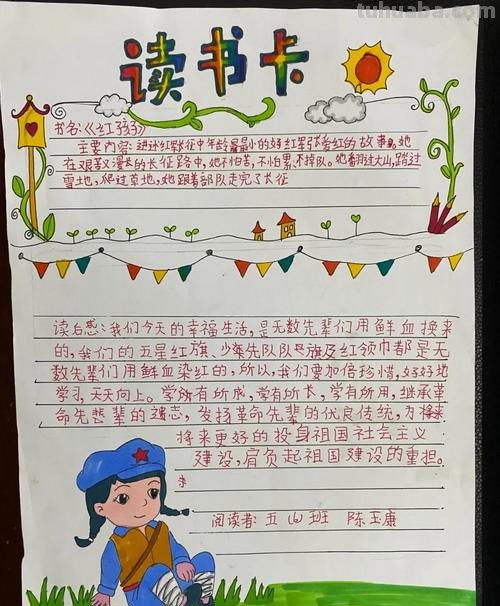 tuhuaba.com
读书卡
书名:《红孩子》
主要内容:讲述红军长征中年龄最小的女红军张爱红的故事。她
在艰难漫长的长征路中,她不怕苦,不怕累,不掉队。她翻过大山,踏过
雪地,爬过草地,她跟着部队走完了长征
读后感:我们今天的幸福生活,是无数先辈们用鲜血换来
的,我们的五星红旗、少年先队队旗及红领巾都是无
数先辈们用鲜血染红的,所以,我们要加倍珍惜,好好地
学习,天天向上。学所有所成,学有所长,学有所用,继承革
命先辈的遗志,发扬革命先辈的优良传统,为将来
将来更好的投身祖国社会主义
建设,肩负起祖国建设的重担。
阅读者:五(4)班 陈玉康